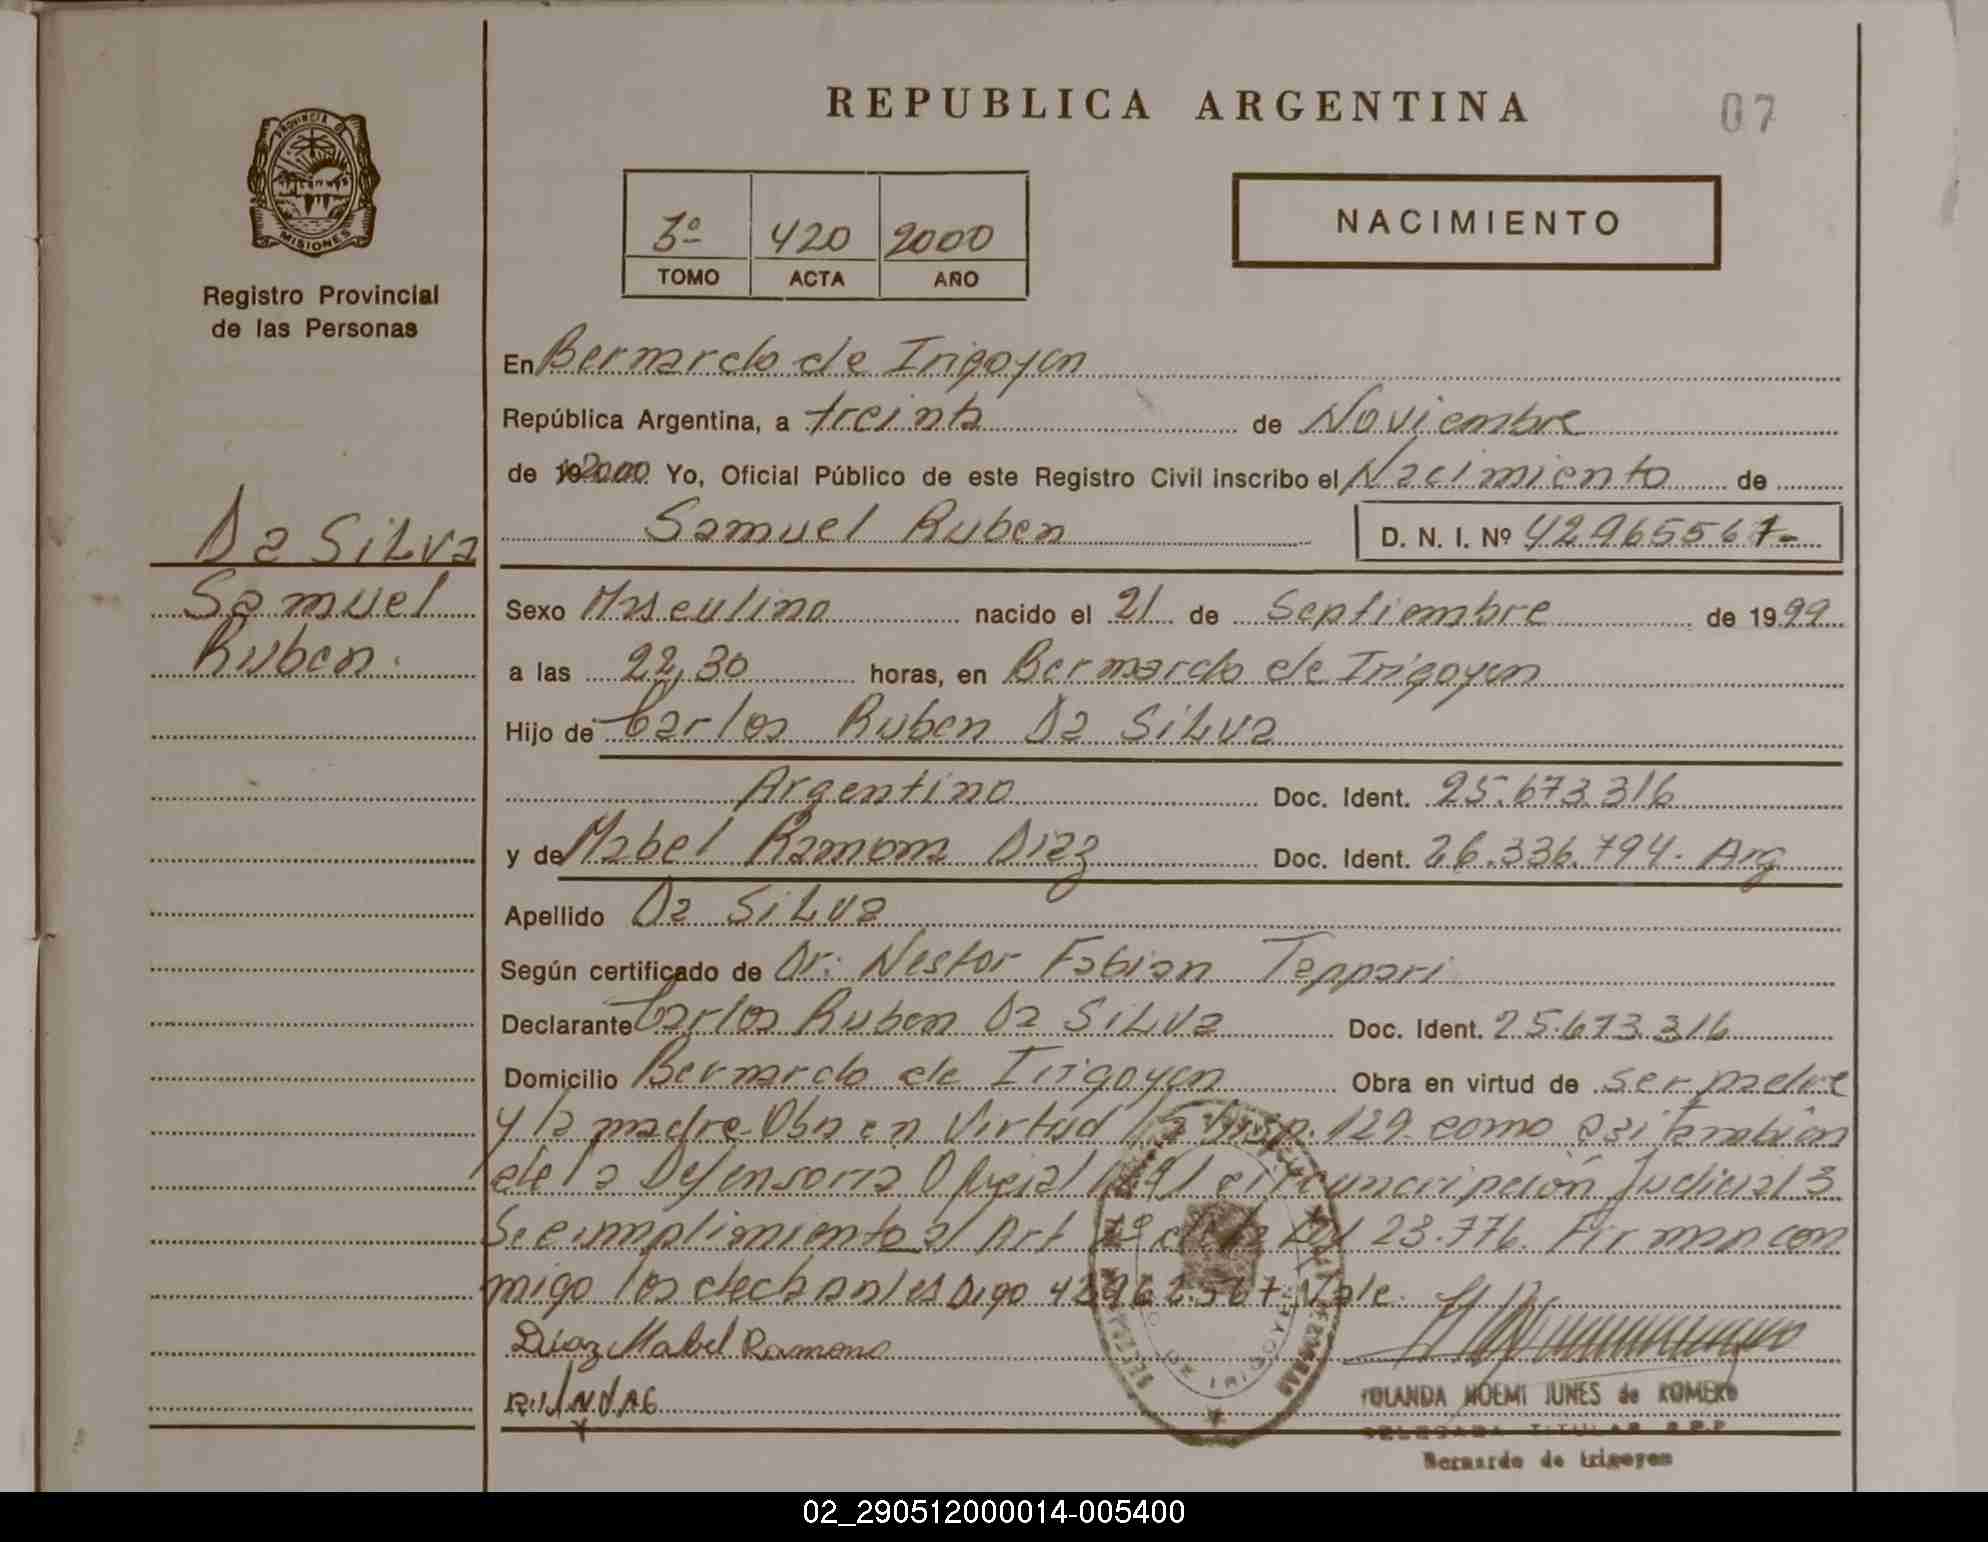 REPUBLICA ARGENTINA
07
PROVINCIA DE
MISIONES
Registro Provincial
de las Personas
3º 420 2000
TOMO ACTA AÑO
NACIMIENTO
En Bernardo de Irigoyen
República Argentina, a treinta de Noviembre
de 2000 Yo, Oficial Público de este Registro Civil inscribo el Nacimiento de
Samuel Ruben D. N. I. Nº 42965567-
Da SiLva
Samuel
Ruben.
Sexo Masculino nacido el 21 de Septiembre de 1999
a las 22,30 horas, en Bernardo de Irigoyen
Hijo de Carlos Ruben Da SiLva
Argentino Doc. Ident. 25.673.316
y de Mabel Ramona Diaz Doc. Ident. 26.336.794. Arg
Apellido Da SiLva
Según certificado de Dr. Nestor Fabian Tappari
Declarante Carlos Ruben Da SiLva Doc. Ident. 25.673.316
Domicilio Bernardo de Irigoyen Obra en virtud de ser padre
y la madre-Obra en Virtud la Disp. 129. como asi tambien
de la Defensoria Oficial circuncripción Judicial 3
Se cumplimiento al Art 2º de la Ley 23.776. Firman con
migo los declarantes Digo Vale.
Diaz Mabel Ramona
YOLANDA NOEMI JUNES de ROMERO
DELEGADA TITULAR R.P.P
Bernardo de Irigoyen
DE IRIGOYEN
02_290512000014-005400